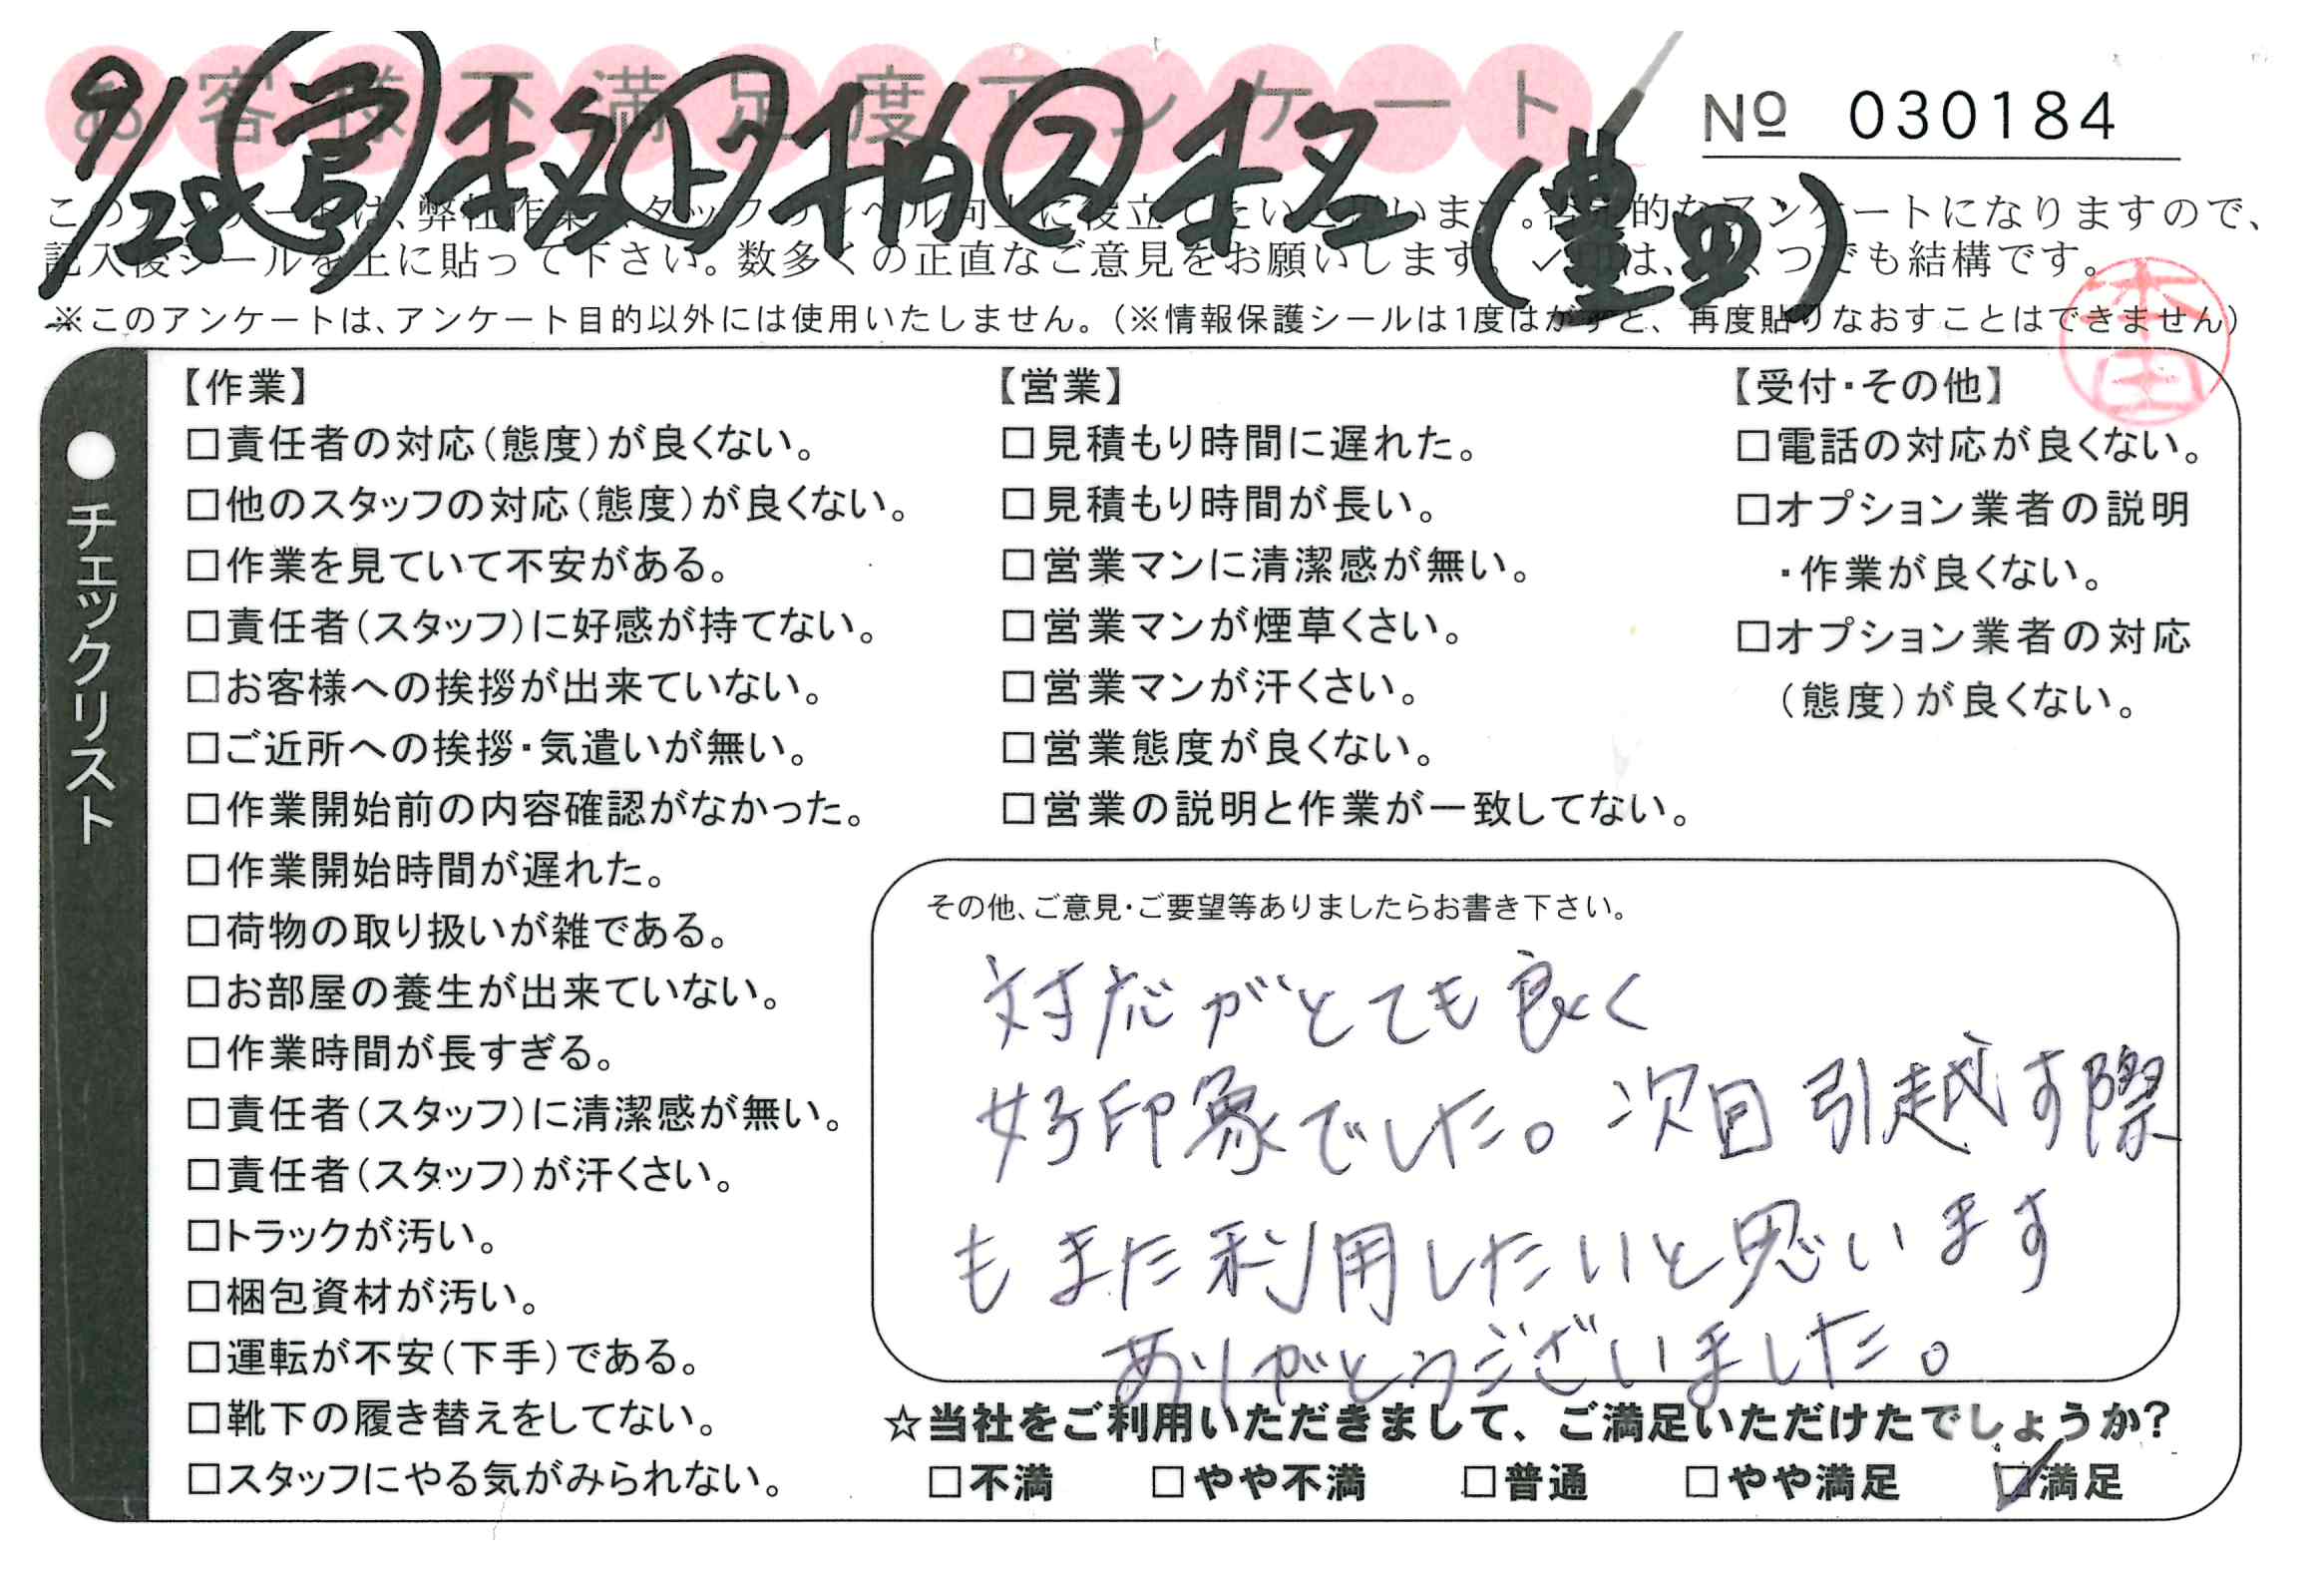 お客様不満足度アンケート
No 030184
9/28 営 上 ス (豊田)
このアンケートは、弊社作業スタッフのレベル向上に役立てたいと思います。否定的なアンケートになりますので、
記入後シールを上に貼って下さい。数多くの正直なご意見をお願いします。✓印は、いくつでも結構です。
※このアンケートは、アンケート目的以外には使用いたしません。(※情報保護シールは1度はがすと、再度貼りなおすことはできません)
本田
●チェックリスト
【作業】
□責任者の対応(態度)が良くない。
□他のスタッフの対応(態度)が良くない。
□作業を見ていて不安がある。
□責任者(スタッフ)に好感が持てない。
□お客様への挨拶が出来ていない。
□ご近所への挨拶・気遣いが無い。
□作業開始前の内容確認がなかった。
□作業開始時間が遅れた。
□荷物の取り扱いが雑である。
□お部屋の養生が出来ていない。
□作業時間が長すぎる。
□責任者(スタッフ)に清潔感が無い。
□責任者(スタッフ)が汗くさい。
□トラックが汚い。
□梱包資材が汚い。
□運転が不安(下手)である。
□靴下の履き替えをしてない。
□スタッフにやる気がみられない。
【営業】
□見積もり時間に遅れた。
□見積もり時間が長い。
□営業マンに清潔感が無い。
□営業マンが煙草くさい。
□営業マンが汗くさい。
□営業態度が良くない。
□営業の説明と作業が一致してない。
【受付・その他】
□電話の対応が良くない。
□オプション業者の説明
・作業が良くない。
□オプション業者の対応
(態度)が良くない。
その他、ご意見・ご要望等ありましたらお書き下さい。
対応がとても良く
好印象でした。次回引越す際
もまた利用したいと思います
ありがとうございました。
☆当社をご利用いただきまして、ご満足いただけたでしょうか?
□不満 □やや不満 □普通 □やや満足 ☑満足